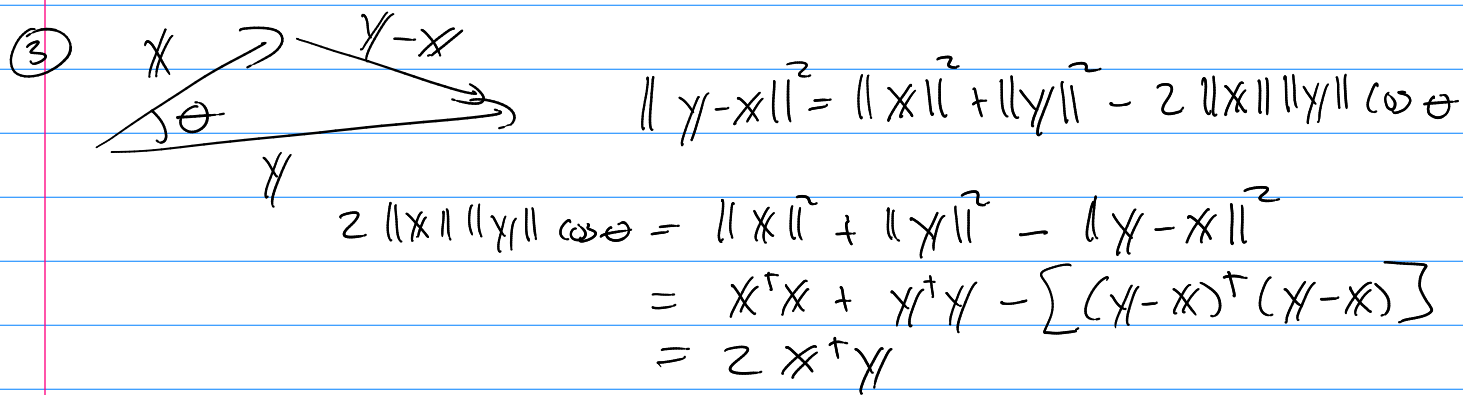 ③ x y-x
θ ||y-x||² = ||x||² + ||y||² - 2 ||x|| ||y|| cos θ
y
2 ||x|| ||y|| cos θ = ||x||² + ||y||² - ||y-x||²
= x^T x + y^T y - [(y-x)^T (y-x)]
= 2 x^T y